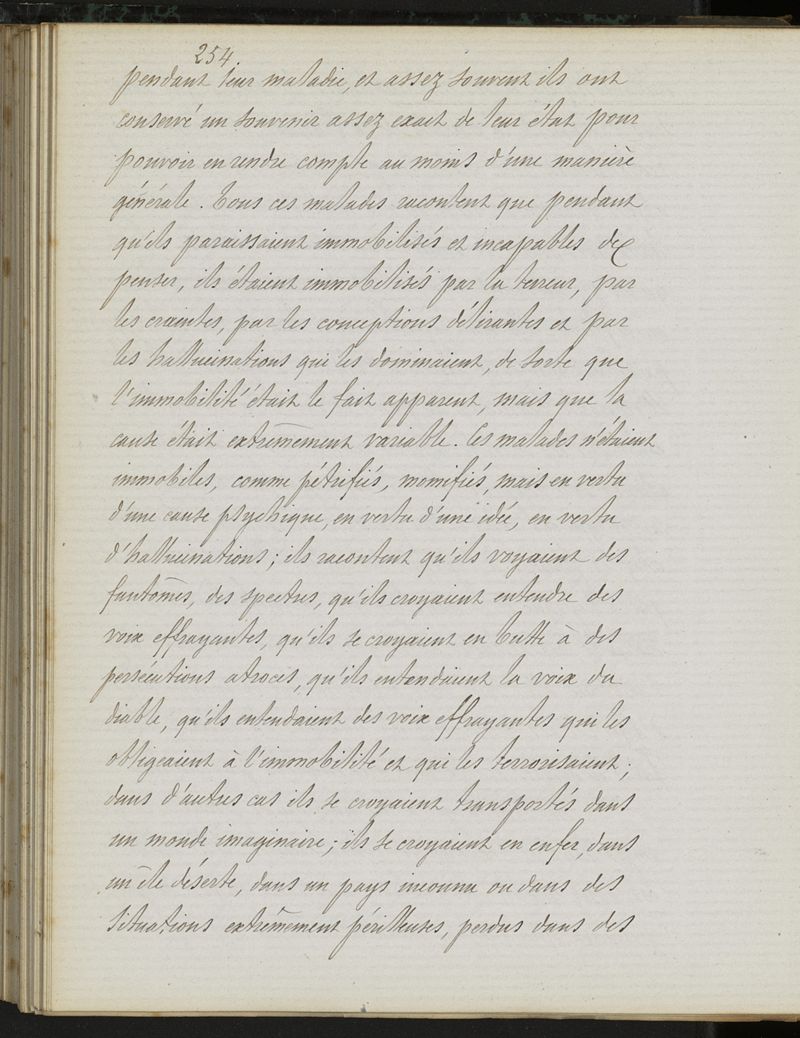 254
pendant leur maladie, et assez souvent ils ont
conservé un souvenir assez exact de leur état pour
pouvoir en rendre compte au moins d'une manière
générale. Tous ces malades racontent que pendant
qu'ils paraissaient immobilisés et incapables de
penser, ils étaient immobilisés par la terreur, par
les craintes, par les conceptions délirantes et par
les hallucinations qui les dominaient, de sorte que
l'immobilité était le fait apparent, mais que la
cause était extrêmement variable. Ces malades n'étaient
immobiles, comme pétrifiés, momifiés, mais en vertu
d'une cause psychique, en vertu d'une idée, en vertu
d'hallucinations; ils racontent qu'ils voyaient des
fantômes, des spectres, qu'ils croyaient entendre des
voix effrayantes, qu'ils se croyaient en butte à des
persécutions atroces, qu'ils entendaient la voix du
diable, qu'ils entendaient des voix effrayantes qui les
obligeaient à l'immobilité et qui les terrorisaient;
dans d'autres cas ils se croyaient transportés dans
un monde imaginaire; ils se croyaient en enfer, dans
un île déserte, dans un pays inconnu ou dans des
situations extrêmement périlleuses, perdus dans des